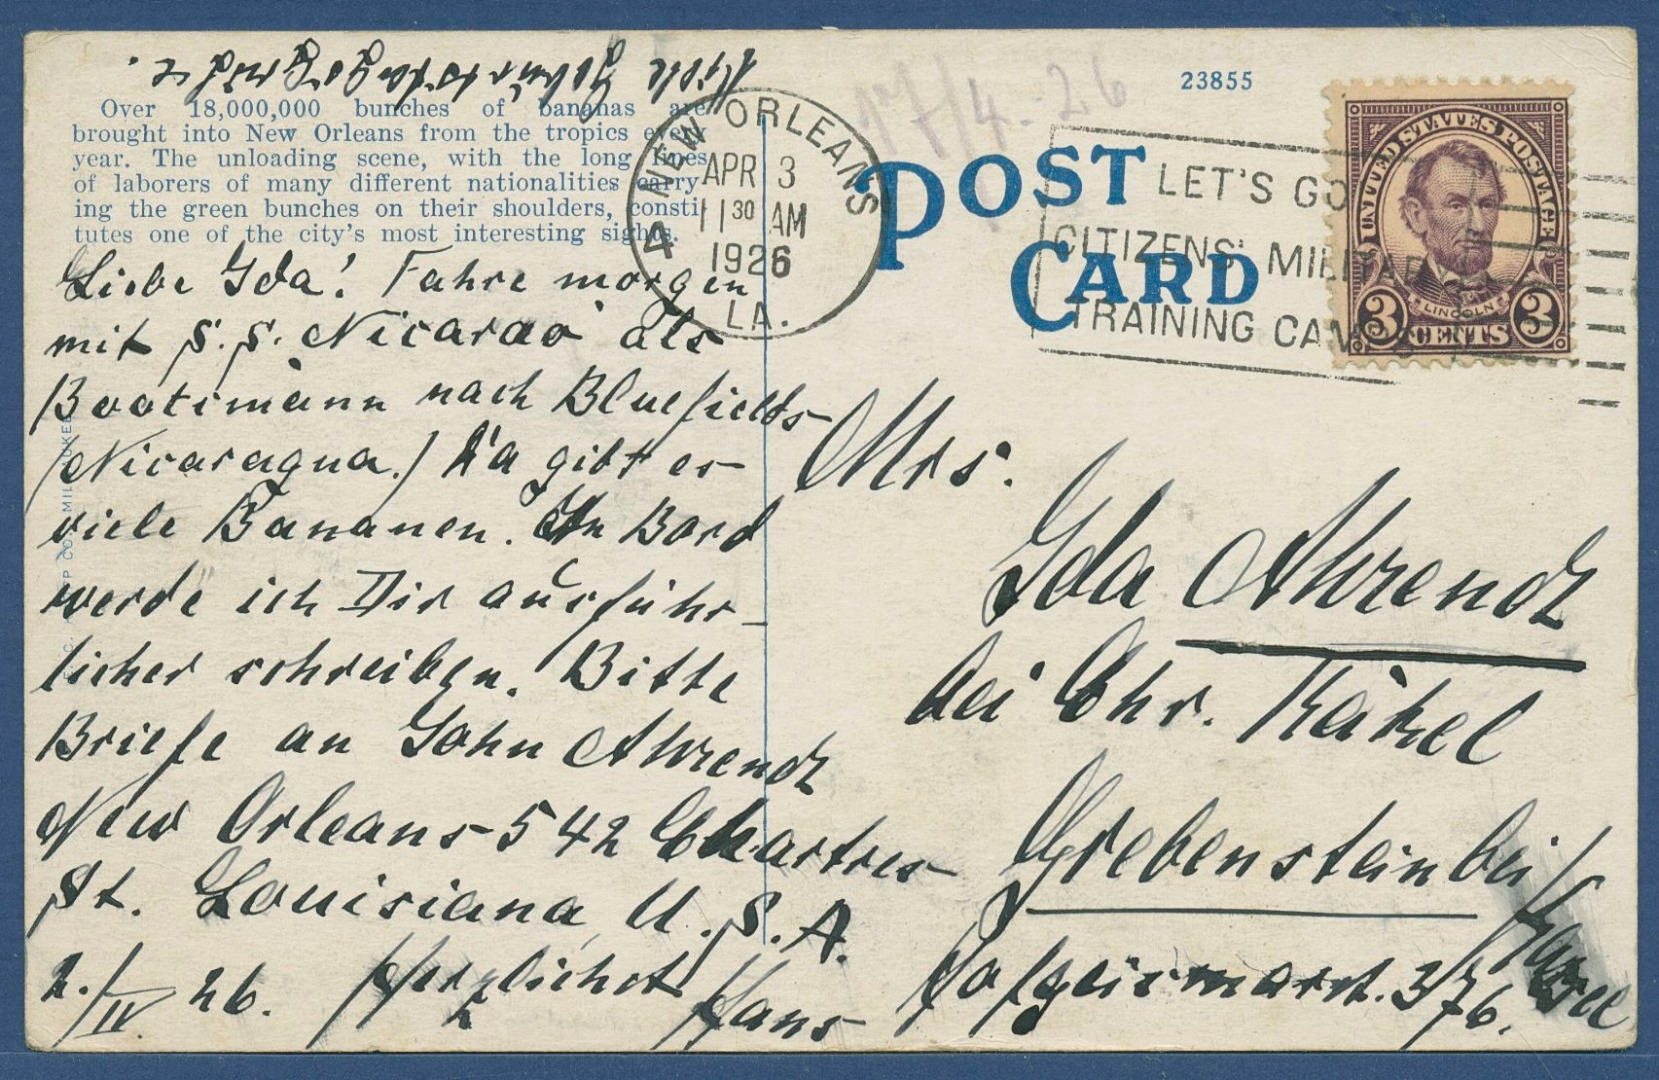 Viele Geburtstagsgrüße.
Over 18,000,000 bunches of bananas are
brought into New Orleans from the tropics every
year. The unloading scene, with the long lines
of laborers of many different nationalities carry-
ing the green bunches on their shoulders, consti-
tutes one of the city's most interesting sights.
Liebe Ida! Fahre morgen
mit S.S. Nicarao als
Bootsmann nach Bluefields
(Nicaragua.) Da gibt es
viele Bananen. An Bord
werde ich Dir ausführ-
licher schreiben. Bitte
Briefe an John Ahrendt
New Orleans 542 Chartres
St. Louisiana U.S.A.
2./IV. 26. Herzlichst Hans
NEW ORLEANS
4
APR 3
11 30 AM
1926
LA.
17/4-26
23855
POST
CARD
LET'S GO
CITIZENS' MILITARY
TRAINING CAMPS
UNITED STATES POSTAGE
LINCOLN
3 CENTS 3
Mrs.
Ida Ahrendt
bei Chr.
Grebenstein bei
Cassel
Hofgeismarst. 376.